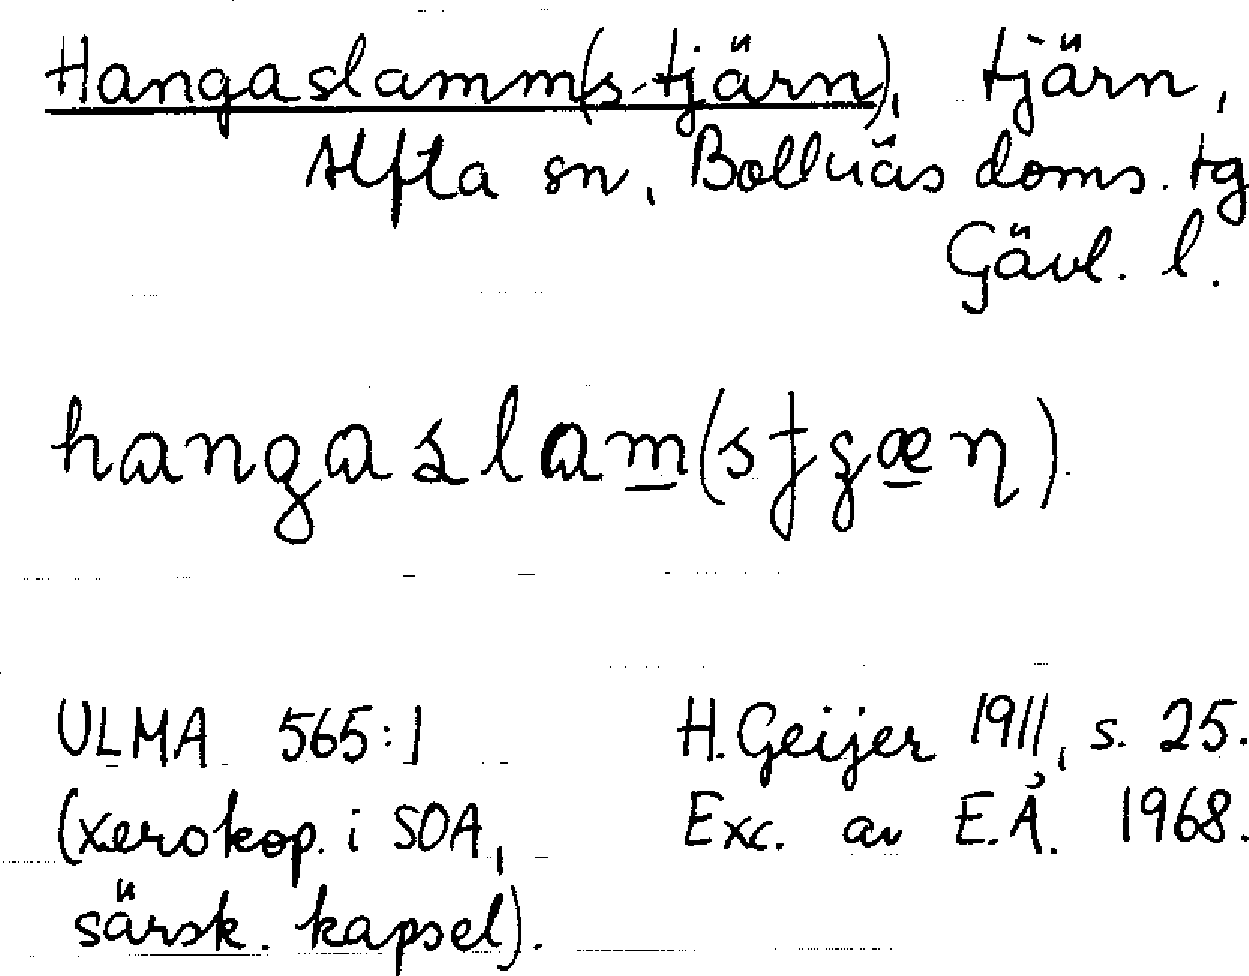 Hangaslamm(s-tjärn), tjärn,
Alfta sn, Bollnäs doms. tg
Gävl. l.
hangaslam(stʒæη).
ULMA 565:1 H. Geijer 1911, s. 25.
(xerokop. i SOA, Exc. av E.Å. 1968.
särsk. kapsel).